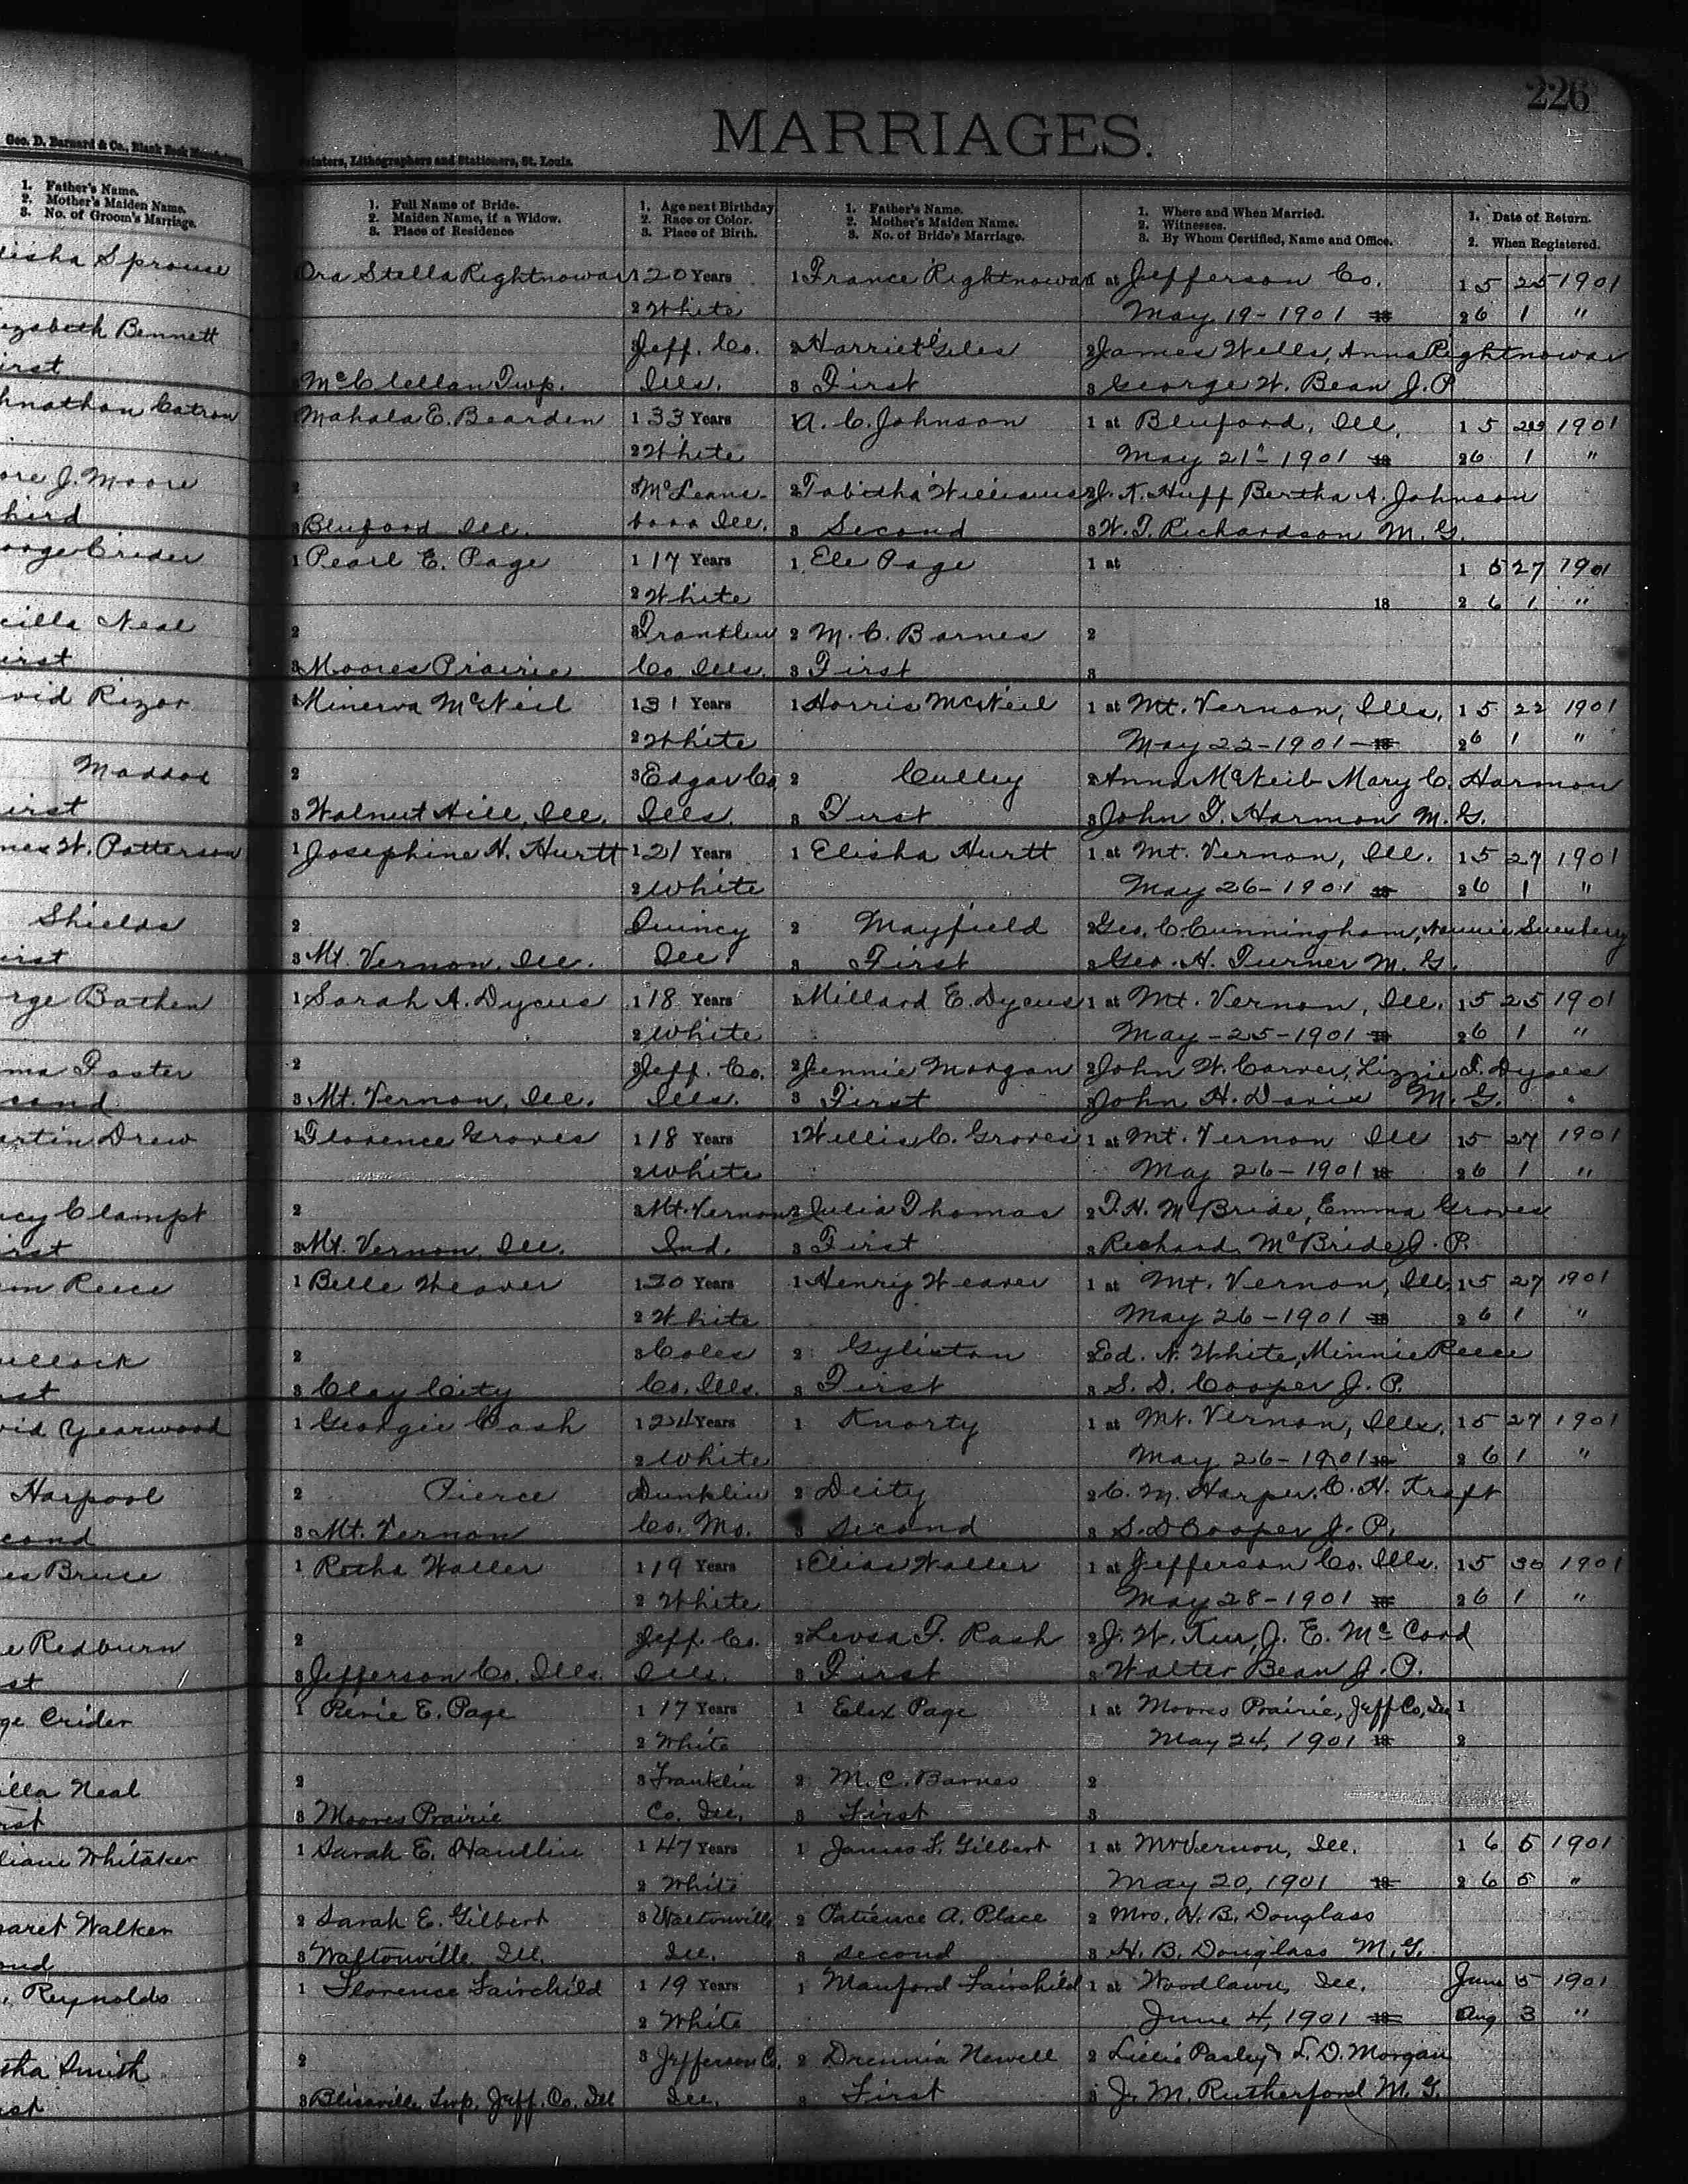 226
MARRIAGES.
Geo. D. Barnard & Co., Blank Book
Printers, Lithographers and Stationers, St. Louis.
1. Father's Name.
2. Mother's Maiden Name.
3. No. of Groom's Marriage.
1. Full Name of Bride.
2. Maiden Name, if a Widow.
3. Place of Residence
1. Age next Birthday
2. Race or Color.
3. Place of Birth.
1. Father's Name.
2. Mother's Maiden Name.
3. No. of Bride's Marriage.
1. Where and When Married.
2. Witnesses.
3. By Whom Certified, Name and Office.
1. Date of Return.
2. When Registered.
lisha Sprouse Ora Stella Rightnowar 1 20 Years 1 France Rightnowar 1 at Jefferson Co. 1 5 25 1901
2 White May 19-1901 18 2 6 1 "
izabeth Bennett 2 Jeff. Co. 2 Harriet Giles 2 James Wells, Anna Rightnowar
irst 3 McClellan Twp. Ills. 3 First 3 George W. Bean J. P.
hnathan Catron Mahala E. Bearden 1 33 Years 1 A. C. Johnson 1 at Bluford, Ill. 1 5 1901
2 White May 21st 1901 18 2 6 1 "
ore J. Moore 2 3 McLeans- 2 Tabitha Williams 2 J. K. Huff Bertha A. Johnson
hird 3 Bluford Ill. boro Ill. 3 Second 3 W. T. Richardson M. G.
orge Crider 1 Pearl E. Page 1 17 Years 1 Ele Page 1 at 1 5 27 1901
2 White 18 2 6 1 "
cilla Neal 2 3 Franklin 2 M. C. Barnes 2
irst 3 Moores Prairie Co Ills. 3 First 3
vid Rizor 1 Minerva McNeil 1 31 Years 1 Horris McNeil 1 at Mt. Vernon, Ills. 1 5 22 1901
2 White May 22-1901 18 2 6 1 "
Maddox 2 3 Edgar Co 2 Culley 2 Anna McNeil Mary C. Harmon
irst 3 Walnut Hill, Ill. Ills. 3 First 3 John T. Harmon M. G.
mes W. Patterson 1 Josephine H. Hurtt 1 21 Years 1 Elisha Hurtt 1 at Mt. Vernon, Ill. 1 5 27 1901
2 White May 26-1901 18 2 6 1 "
Shields 2 Quincy 2 Mayfield 2 Geo. C. Cunningham,
irst 3 Mt. Vernon, Ill. Ill. 3 First 3 Geo. H. Turner M. G.
rge Bathen 1 Sarah A. Dycus 1 18 Years 1 Millard E. Dycus 1 at Mt. Vernon, Ill. 1 5 25 1901
2 White May-25-1901 18 2 6 1 "
ma Foster 2 3 Jeff. Co. 2 Jennie Morgan 2 John W. Carver, Lizzie F. Dyces
cond 3 Mt. Vernon, Ill. Ills. 3 First 3 John H. Davis M. G.
artin Drew 1 Florence Groves 1 18 Years 1 Willis C. Groves 1 at Mt. Vernon Ill 1 5 27 1901
2 White May 26-1901 18 2 6 1 "
ncy Clampt 2 3 Mt. Vernon 2 Julia Thomas 2 T. H. McBride, Emma Groves
irst 3 Mt. Vernon, Ill. Ind. 3 First 3 Richard McBride J. P.
on Reece 1 Belle Weaver 1 30 Years 1 Henry Weaver 1 at Mt. Vernon, Ill. 1 5 27 1901
2 White May 26-1901 18 2 6 1 "
ullock 2 3 Coles 2 Gyliston 2 Ed. N. White, Minnie Reece
rst 3 Clay City Co. Ills. 3 First 3 S. D. Cooper J. P.
vid Yearwood 1 Georgie Cash 1 24 Years 1 Knorty 1 at Mt. Vernon, Ills. 1 5 27 1901
2 White May 26-1901 18 2 6 1 "
Harpool 2 Pierce Dunklin 2 Deity 2 C. M. Harper, C. H. Kraft
cond 3 Mt. Vernon Co. Mo. 3 Second 3 S. D Cooper J. P.
es Bruce 1 Retha Waller 1 19 Years 1 Elias Waller 1 at Jefferson Co. Ills. 1 5 30 1901
2 White May 28-1901 18 2 6 1 "
e Redburn 2 Jeff. Co. 2 Levsa F. Rash 2 J. W. J. E. McCord
st 3 Jefferson Co. Ills. Ills. 3 First 3 Walter Bean J. P.
ge Crider 1 E. Page 1 17 Years 1 Elex Page 1 at Moores Prairie, Jeff Co, Ill 1
2 White May 24, 1901 18 2
illa Neal 2 3 Franklin 2 M. C. Barnes 2
rst 3 Moores Prairie Co. Ill. 3 First 3
liam Whitaker 1 Sarah E. Handlin 1 47 Years 1 James F. Gilbert 1 at Mt Vernon, Ill. 1 6 5 1901
2 White May 20, 1901 18 2 6 5 "
garet Walker 2 Sarah E. Gilbert 3 Waltonville 2 Patience A. Place 2 Mrs. H. B. Douglass
ond 3 Waltonville Ill. Ill. 3 Second 3 H. B. Douglass M. G.
. Reynolds 1 Florence Fairchild 1 19 Years 1 Manford Fairchild 1 at Woodlawn, Ill. June 5 1901
2 White June 4, 1901 18 Aug 3 "
tha Smith 2 3 Jefferson Co. 2 Drennia Newell 2 Lillie Pasley & L. D. Morgan
st 3 Blissville Twp, Jeff. Co. Ill Ill. 3 First 3 J. M. Rutherford M. G.